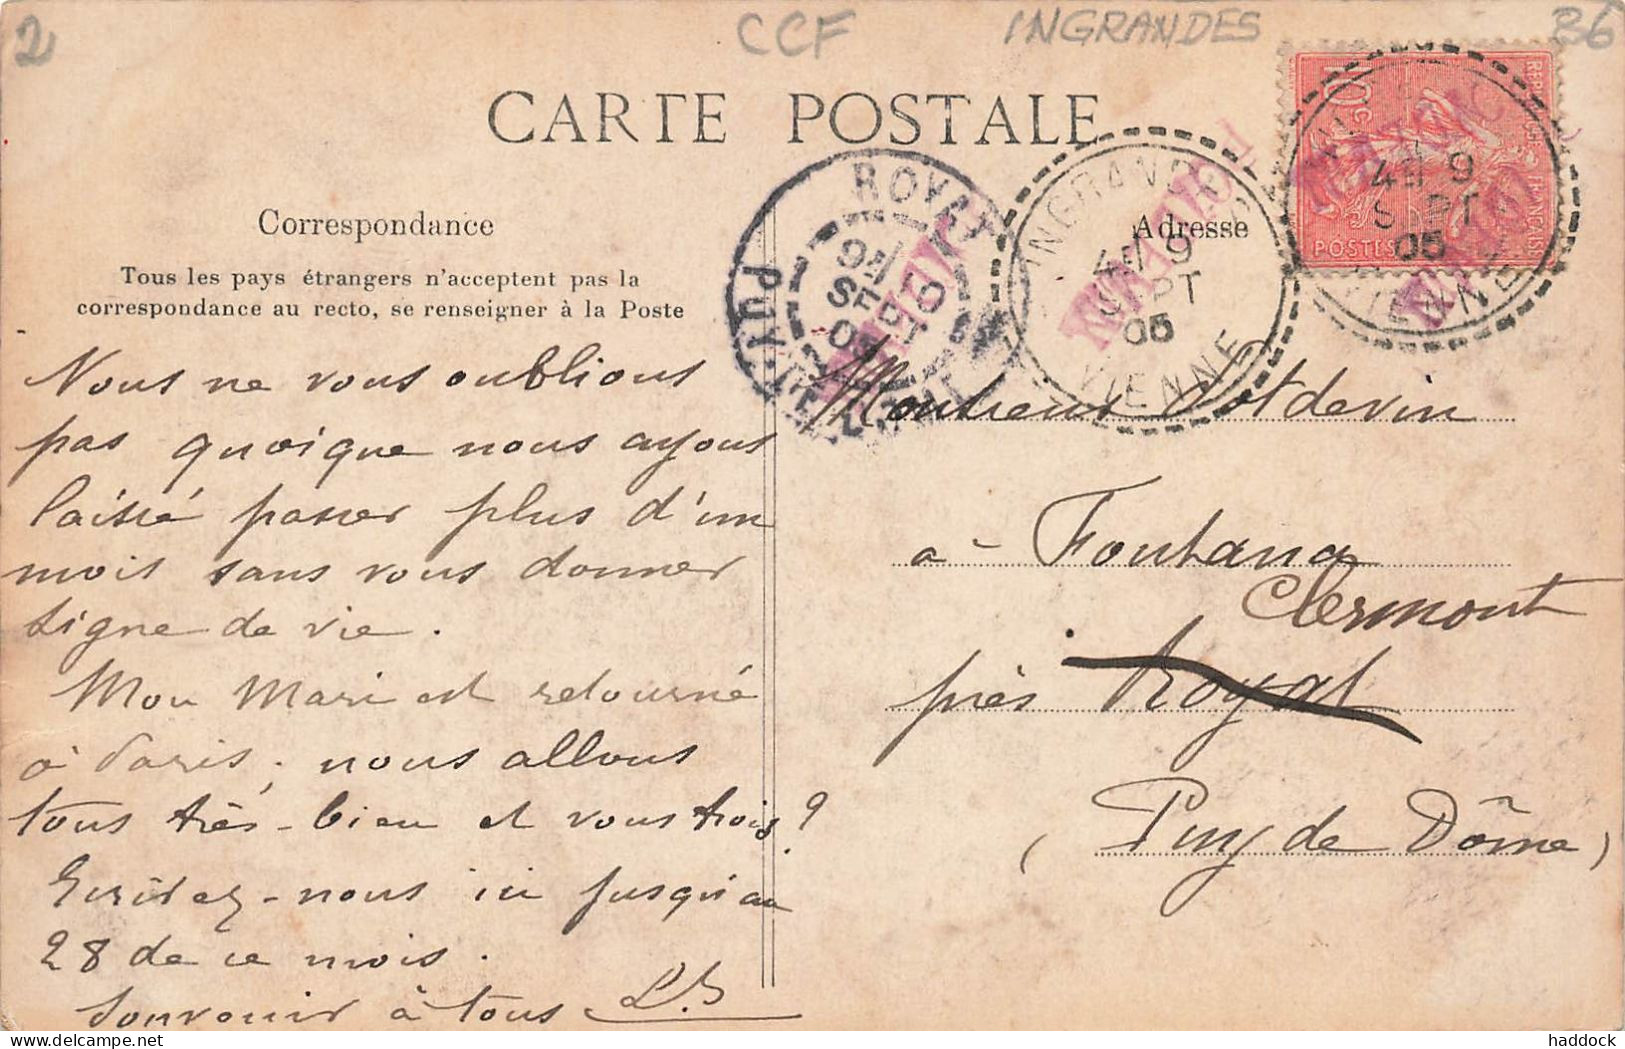 2
CCF
INGRANDES
86
CARTE POSTALE
REPUBLIQUE FRANÇAISE
10 c
POSTES
4E/ 9
SEPT
05
VIENNE
INGRANDES
4E/ 9
SEPT
05
VIENNE
ROYAT
9E/
SEPT
05
PUY-DE-DOME
Correspondance
Adresse
Tous les pays étrangers n'acceptent pas la
correspondance au recto, se renseigner à la Poste
Nous ne vous oublions
pas quoique nous ayons
laissé passer plus d'un
mois sans vous donner
signe de vie.
Mon Mari est retourné
à Paris; nous allons
tous très-bien et vous trois?
Ecrivez-nous ici jusqu'au
28 de ce mois.
Souvenir à tous L.B
Monsieur Potdevin
à Fontana
Clermont
près Royat
(Puy de Dôme)
haddock